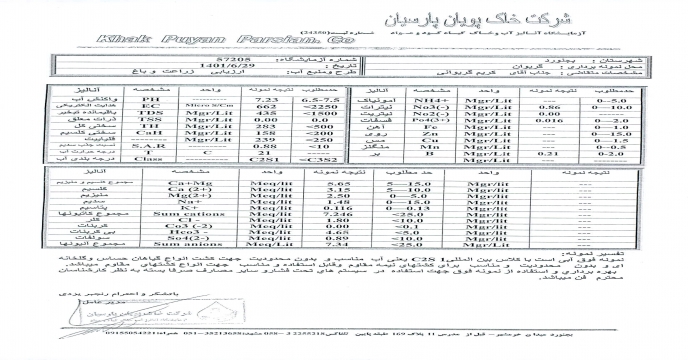 شرکت خاک پویان پارسیان
آزمایشگاه آنالیز آب و خاک گیاه کود و سواد شماره ثبت (24350)
Khak Puyan Parsian. Co
شهرستان : بجنورد شماره آزمایشگاه: 57205
محل نمونه برداری : گریوان تاریخ : 1401/6/29
مشخصات متقاضی : جناب آقای کریم گریوانی طرح ومنبع آب: ارزیابی زراعت و باغ
آنالیز مشخصه واحد نتیجه نمونه حدمطلوب آنالیز مشخصه واحد نتیجه نمونه حدمطلوب
واکنش آب PH 7.23 6.5-7.5 آمونیاک NH4+ Mgr/Lit --- 0–5.0
هدایت الکتریکی EC Micro s/Cm 662 <2250 نیترات No3(-) Mgr/Lit 0.86 0–10.0
باقیمانده تبخیر TDS Mgr/Lit 435 <1500 نیتریت No2(-) Mgr/Lit 0.00
ذرات معلق TSS Mgr/Lit 0.00 0.0 فسفات Po4(3+) Mgr/Lit 0.016 0–2.0
سختی کل TH Mgr/Lit 283 <500 آهن Fe Mgr/Lit --- 0–1.0
سختی کلسیم CaH Mgr/Lit 158 <200 روی Zn Mgr/Lit --- 0–2.0
قلیاییت Mgr/Lit 239 <250 مس Cu Mgr/Lit --- 0–1.5
نسبت جذب سدیم S.A.R 0.88 <10 منگنز Mn Mgr/Lit --- 0–0.5
درجه حرارت آب T C 21 ---- بر B Mgr/Lit 0.21 0-2.0
درجه بندی آب Class ---------- C2S1 <C3S2
آنالیز مشخصه واحد نتیجه نمونه حد مطلوب واحد نتیجه نمونه
مجموع کلسیم و منیزیم Ca+Mg Meq/lit 5.65 5—15.0 Mgr/lit ---
کلسیم Ca (2+) Meq/lit 3.15 5—10.0 Mgr/lit ---
منیزیم Mg(2+) Meq/lit 2.50 0—5.0 Mgr/lit ---
سدیم Na+ Meq/lit 1.48 0—15.0 Mgr/lit ---
پتاسیم K+ Meq/lit 0.116 0—0.13 Mgr/lit ---
مجموع کاتیونها Sum cations Meq/lit 7.246 <25.0 Mgr/lit ---
کلر Cl - Meq/lit 1.80 <10.0 Mgr/lit ---
کربنات Co3 (-2) Meq/lit 0.00 <0.1 Mgr/lit ---
بی کربنات Hco3 - Meq/lit 4.65 <5.0 Mgr/lit ---
سولفات So4(2-) Meq/lit 0.89 <10.0 Mgr/lit ---
مجموع آنیونها Sum anions Meq/Lit 7.34 <25.0 Mgr/Lit ---
تفسیر نمونه:
نمونه فوق آبی است با کلاس بین المللی C2S1 یعنی آب مناسب و بدون محدودیت جهت کشت انواع گیاهان حساس وگلخانه
ای و بدون محدودیت و مناسب برای کشتهای نیمه مقاوم وقابل استفاده و مناسب جهت انواع کشتهای مقاوم میباشد.
بهره برداری و استفاده از نمونه فوق جهت استفاده در سیستم های تحت فشار و سایر مصارف صرفا بسته به نظر کارشناسان
محترم فن میباشد.
باتشکر و احترام رنجبر یزدی
مدیر عامل
بجنورد میدان خرمشهر – قبل از مدرس 11 پلاک 169 طبقه پایین